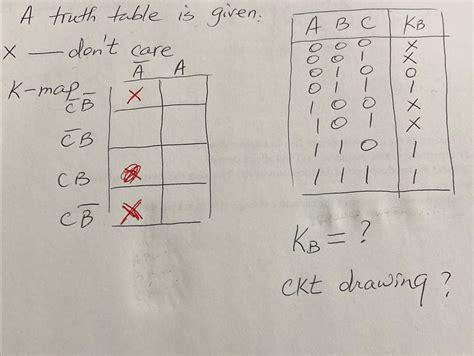 A truth table is given:
x — don't care
K-map
A̅ A
C̅ B̅ x
C̅ B
C B
C B̅ x
A B C K_B
0 0 0 x
0 0 1 x
0 1 0 0
0 1 1 1
1 0 0 x
1 0 1 x
1 1 0 1
1 1 1 1
K_B = ?
ckt drawing ?